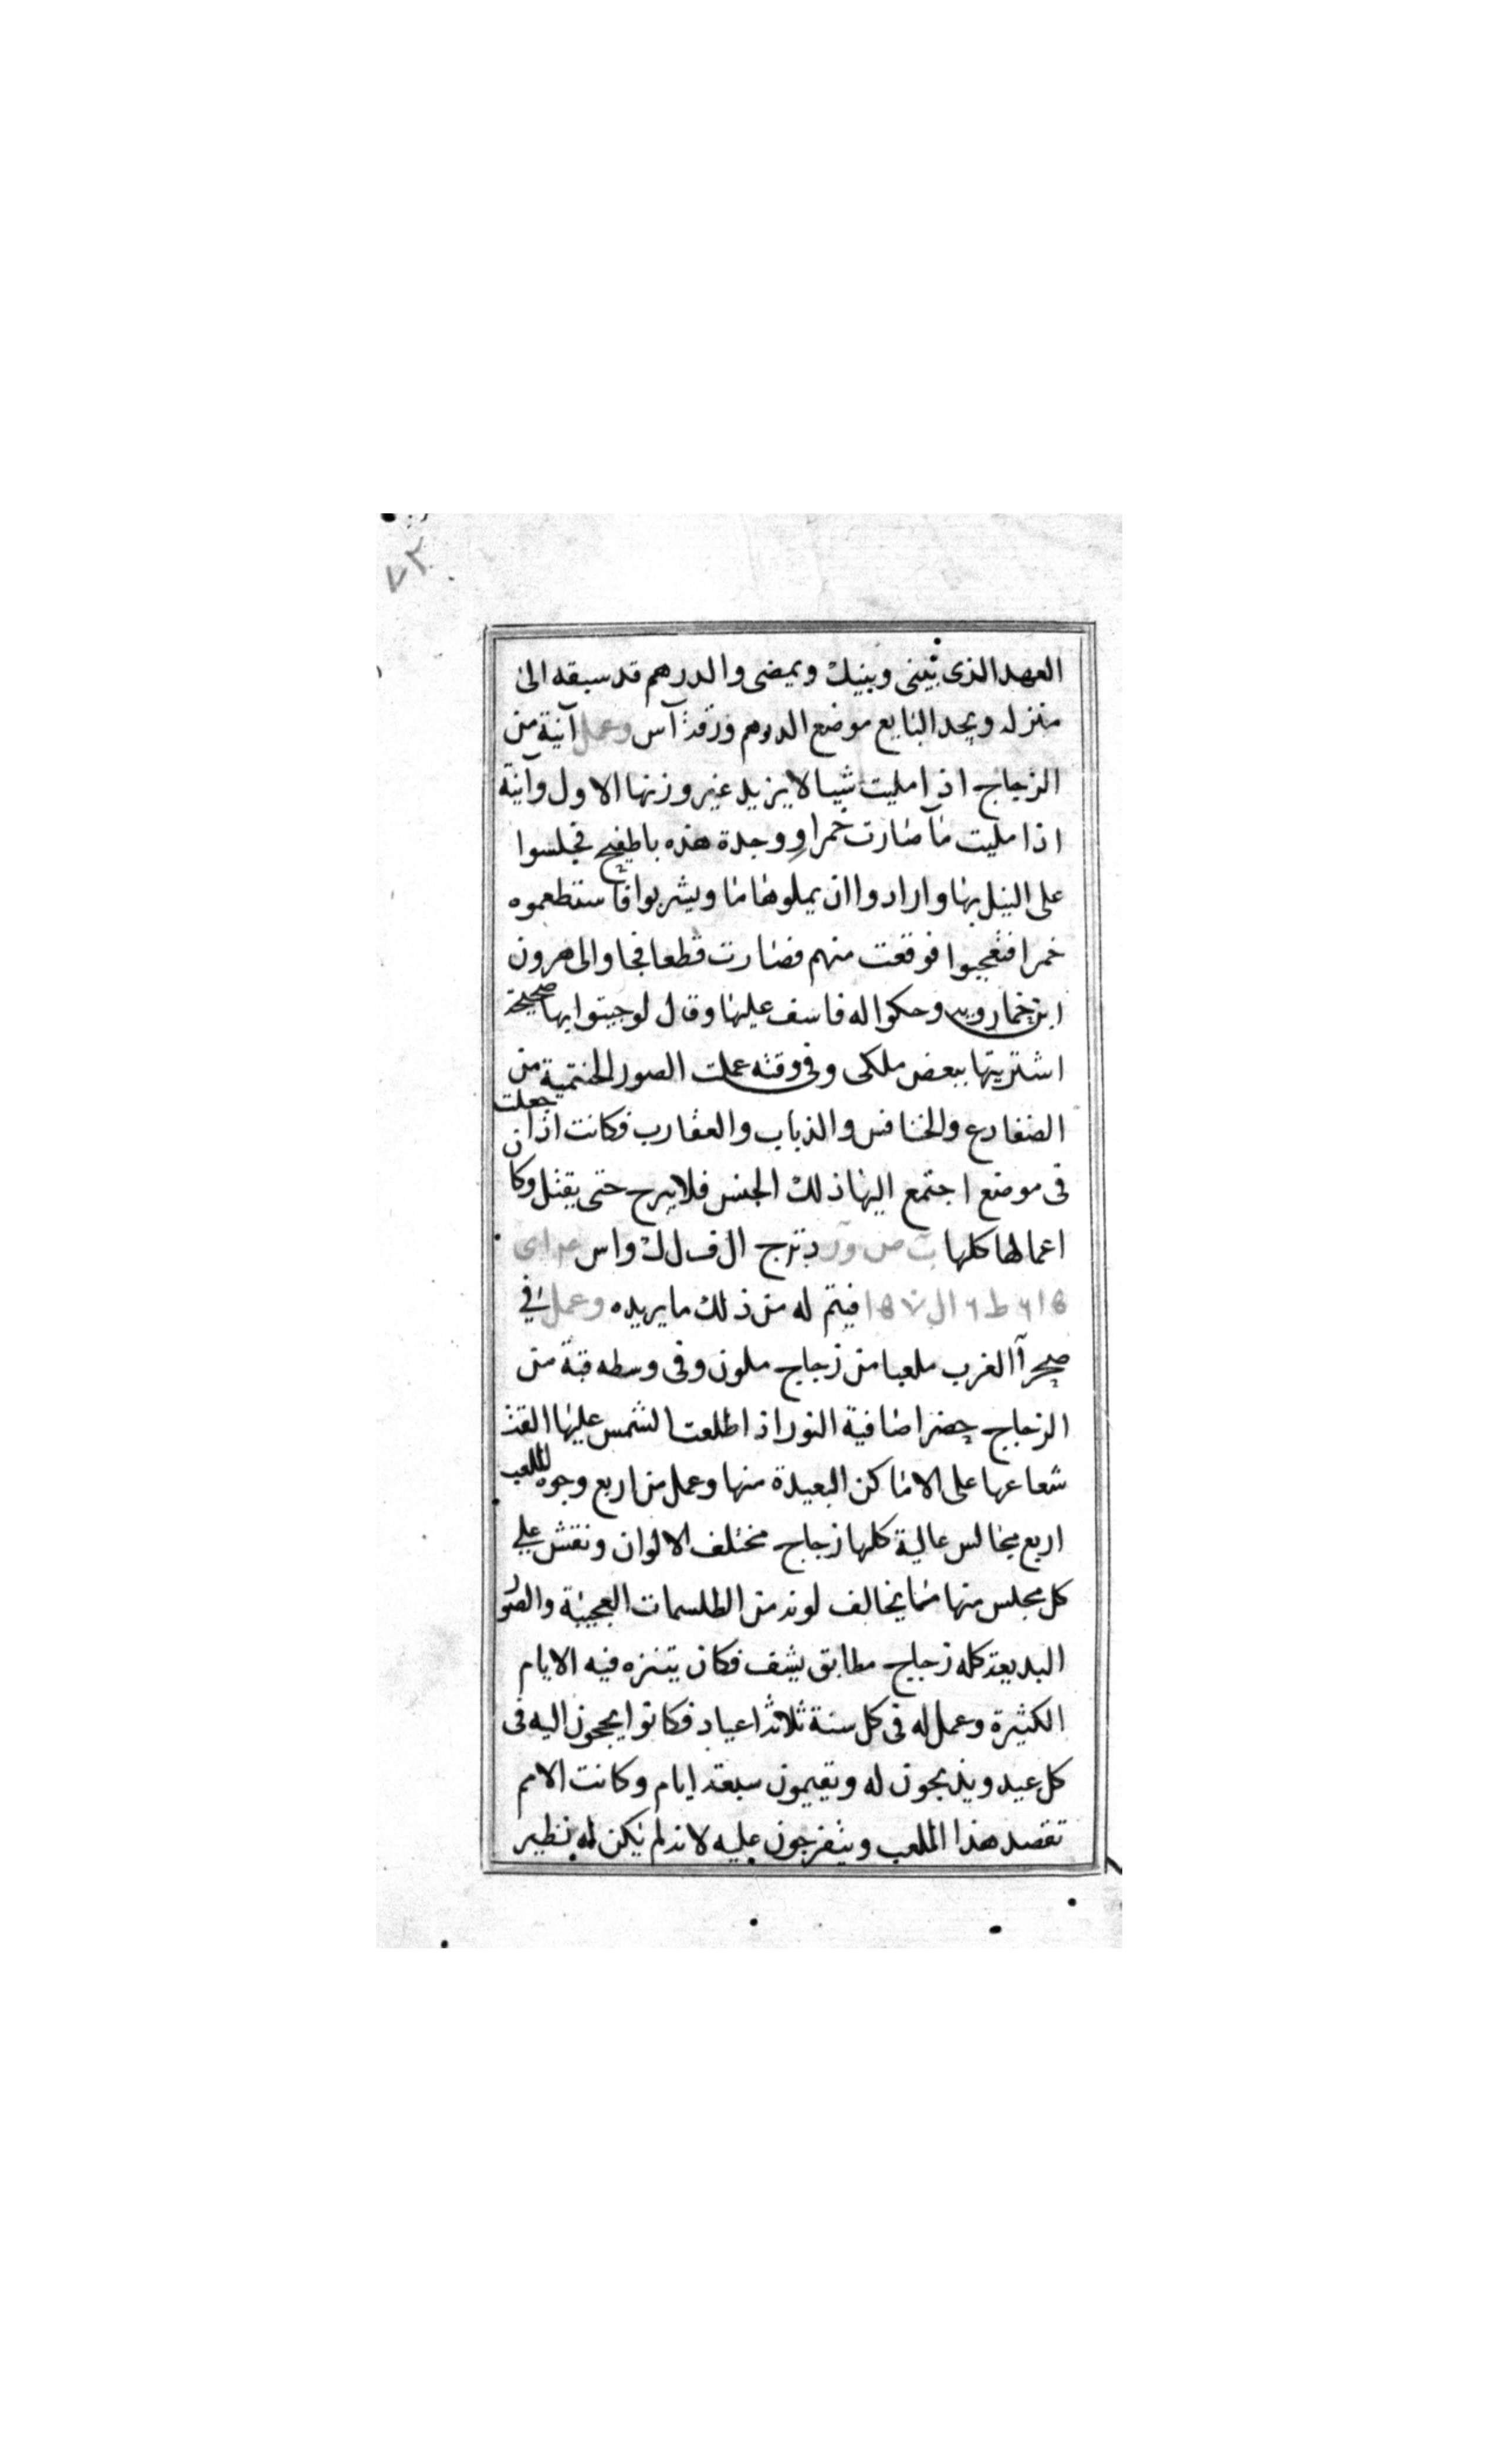 ٧٣
العهد الذى بينى وبينك ويمضى والدرهم قد سبقه الى
منزله ويجد البايع موضع الدرهم ورقة آس وعمل آنية من
الزجاج اذا مليت شيا لايزيد غير وزنها الاول وآنية
اذا مليت مآ صارت خمرا ووجدة هذه باطفيح فجلسوا
على النيل بها وارادوا ان يملوها ما ويشربوا فاستطعموه
خمرا فتعجبوا فوقعت منهم فصارت قطعا فجاوا الى هرون
ابن خمارويه وحكوا له فاسف عليها وقال لو جيتوا بها صحيحة
اشتريتها ببعض ملكى وفى وقته عملت الصور الحنتمية من
الضفادع والخنافس والذباب والعقارب فكانت اذا جعلت
فى موضع اجتمع اليها ذلك الجنس فلا يبرح حتى يقتل وكان
اعمالها كلها ب ص ور د ترج ال ف ل ك واس
فيتم له من ذلك ما يريده وعمل فى
صحرآ الغرب ملعبا من زجاج ملون وفى وسطه قبة من
الزجاج خضرا صافية النور اذا طلعت الشمس عليها القت
شعاعها على الاماكن البعيدة منها وعمل من اربع وجوه الملعب
اربع مجالس عالية كلها زجاج مختلف الالوان ونقش على
كل مجلس منها مما يخالف لونه من الطلسمات العجيبة والصور
البديعة كله زجاج مطابق يشف فكان يتنزه فيه الايام
الكثيرة وعمل له فى كل سنة ثلاثة اعياد فكانوا يحجون اليه فى
كل عيد ويذبحون له ويقيمون سبعة ايام وكانت الامم
تقصد هذا الملعب ويتفرجون عليه لانه لم يكن له نظير